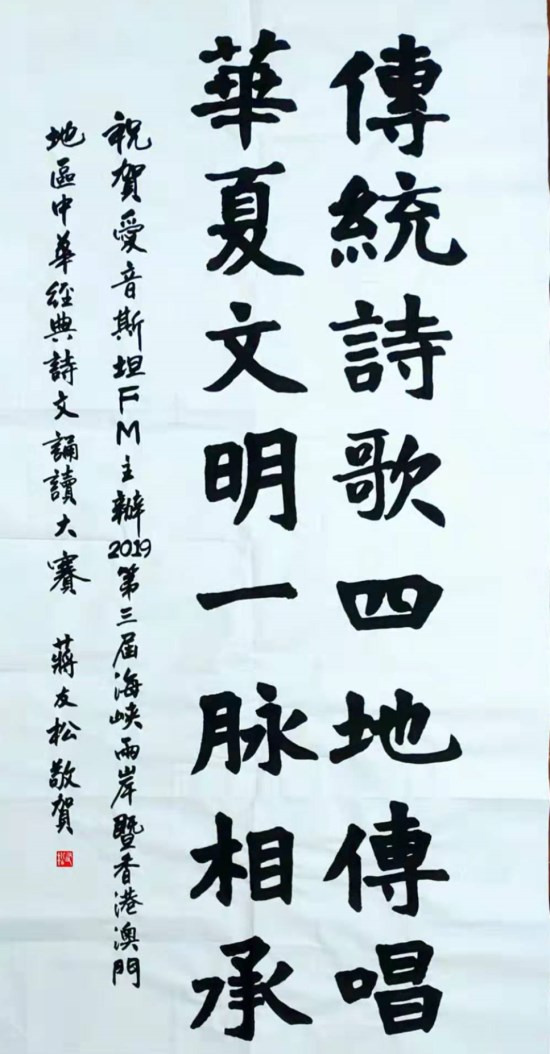 傳統詩歌四地傳唱
華夏文明一脉相承
祝賀愛音斯坦FM主辦2019第三届海峡兩岸暨香港澳門
地區中華經典詩文誦讀大賽 蔣友松敬賀